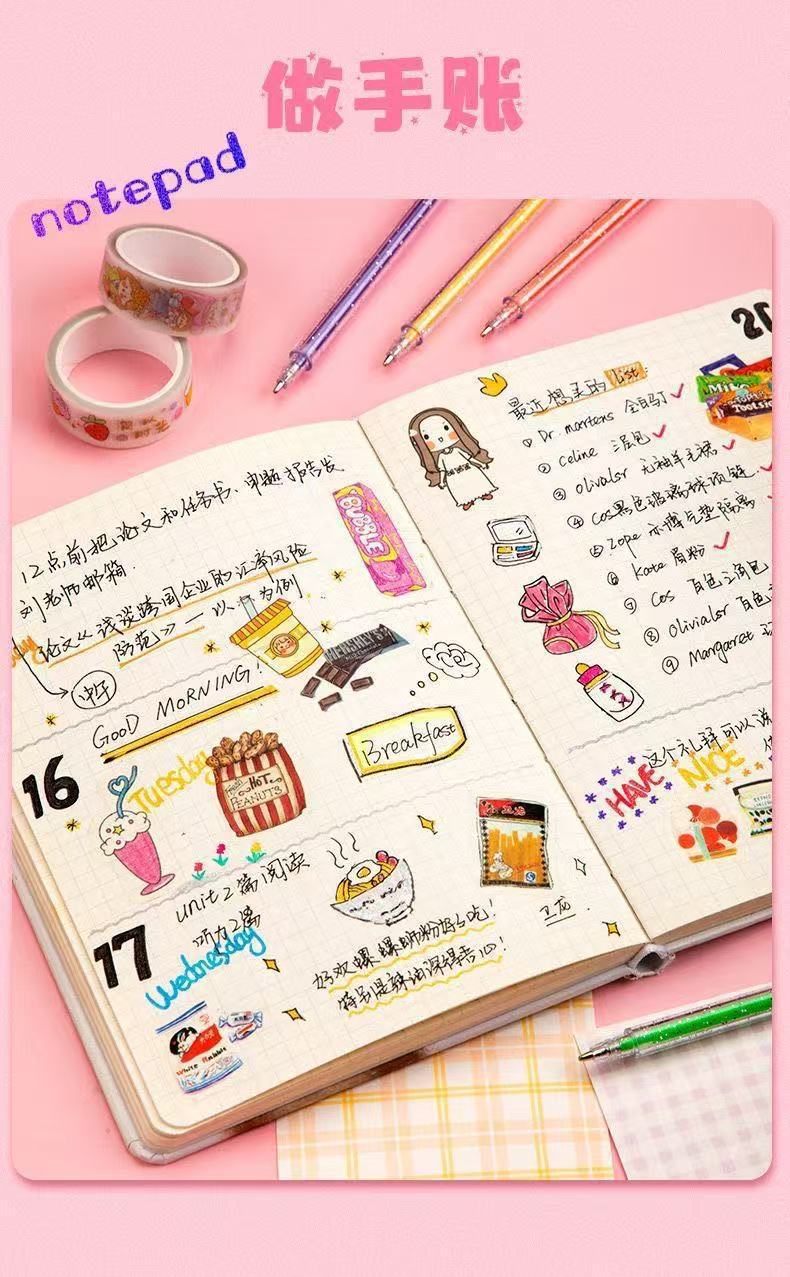 做手账
notepad
12点前把论文和任务书、申题报告发
刘老师邮箱.
论文《浅谈跨国企业的汇率风险
防范》——以 为例
中午
GOOD MORNING!
BUBBLE
HERSHEY'S
Breakfast
16
Tuesday
HOT
PEANUTS
unit 2篇阅读
听力2篇
17
Wednesday
好欢螺螺蛳粉好好吃!
特别是辣油深得吾心!
卫龙
White Rabbit
20
最近想买的 list:
① Dr. martens 全自马丁
② Celine 三层包
③ Olivalsr 无袖羊毛裙
④ Cos黑色玻璃球项链
⑤ Zope 亦博气垫隔离
⑥ Kate 眉粉
⑦ Cos 百色三角包
⑧ Olivialsr 百色
⑨ Margaret
Milk
Tootsie
这个礼拜可以说
HAVE NICE